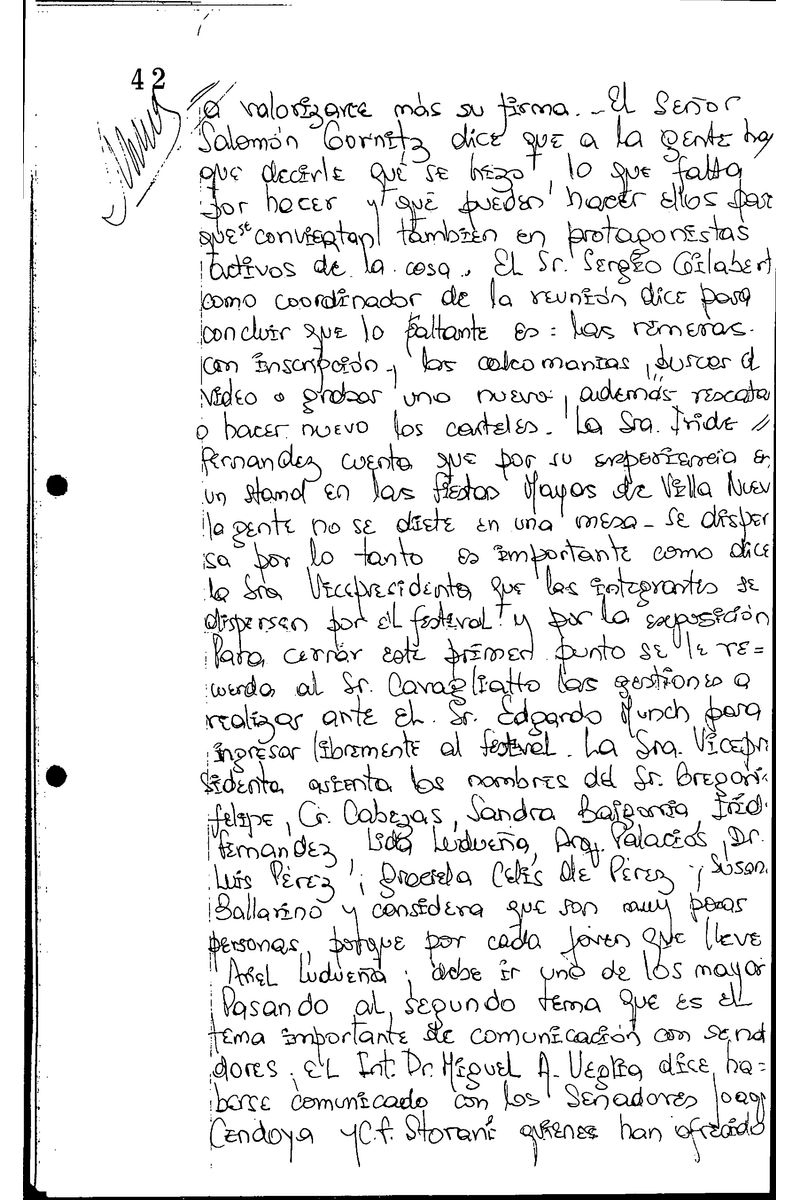 42
a valorizarce más su firma. - El Señor
Salomón Gornitz dice que a la gente hay
que decirle qué se hizo, lo que falta
por hacer y qué pueden hacer ellos par
que se conviertan también en protagonistas
activos de la cosa. El Sr. Sergio Gilabert
como coordinador de la reunión dice para
concluir que lo faltante es: las remeras
con inscripción, las calcomanías, buscar el
video o grabar uno nuevo, además rescata
o hacer nuevo los carteles. La Sra. Iride //
Fernandez cuenta que por su experiencia en
un stand en las fiestas Mayas de Villa Nuev
la gente no se diete en una mesa - se disper
sa por lo tanto es importante como dice
la Sra Vicepresidenta que los integrantes se
dispersen por el festival y por la exposición
Para cerrar este primer punto se le re=
cuerda al Sr. Cavagliatto las gestiones a
realizar ante el Sr. Edgardo Munch para
ingresar libremente al festival. La Sra. Vicepr
sidenta asienta los nombres del Sr. Gregori
felipe, Cr. Cabezas, Sandra Baigorria, Irid
fernandez, Lida Ludueña, Arq. Palacios, Dr.
Luis Pérez, Graciela Celis de Pérez, Susan
Ballarino y considera que son muy pocas
personas, porque por cada joven que lleve
Ariel Ludueña, debe ir uno de los mayor
Pasando al segundo tema que es el
tema importante de comunicación con send
dores. El Int. Dr. Miguel A. Veglia dice ha=
berse comunicado con los Senadores Joaq
Cendoya y C.f. Storani quienes han ofrecido